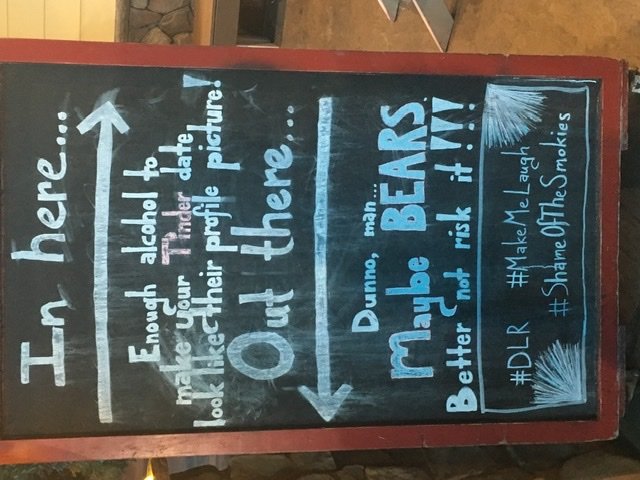 In here...
Enough alcohol to
make your Tinder date
look like their profile picture!
Out there...
Dunno, man...
Maybe BEARS
Better not risk it!!!
#DLR #MakeMeLaugh
#ShameOfTheSmokies